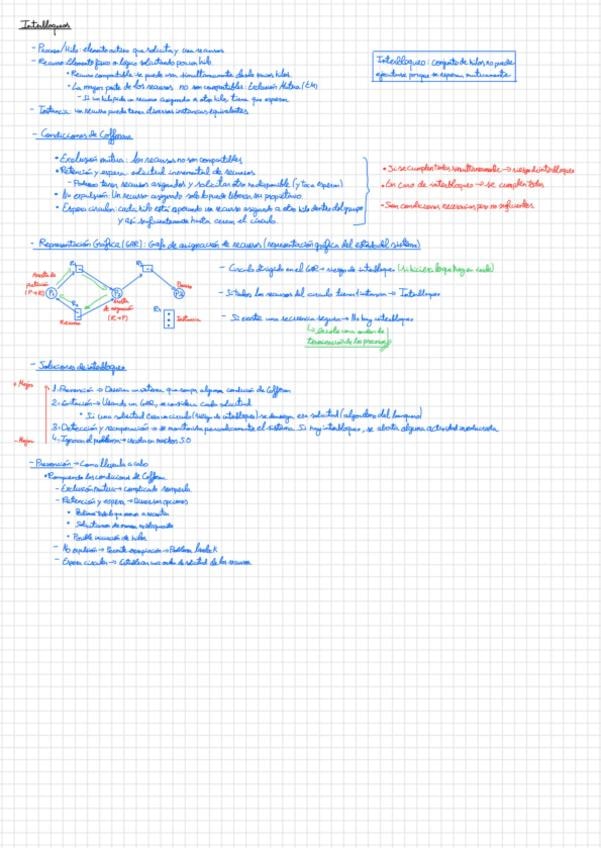 Interbloqueos
- Proceso/Hilo: elemento activo que solicita y usa recursos
- Recurso: Elemento físico o lógico solicitado por un hilo
• Recurso compatible: se puede usar simultáneamente desde varios hilos
• La mayor parte de los recursos no son compartibles: Exclusión Mutua (EM)
- Si un hilo pide un recurso asignado a otro hilo, tiene que esperar
- Instancia: un recurso puede tener diversas instancias equivalentes
Interbloqueo: conjunto de hilos no puede
ejecutarse porque se esperan mutuamente
- Condiciones de Coffman
• Exclusión mutua: los recursos no son compatibles
• Retención y espera: solicitud incremental de recursos
- Podemos tener recursos asignados y solicitar otro no disponible (y toca esperar)
• No expulsión: Un recurso asignado solo lo puede liberar su propietario
• Espera circular: cada hilo está esperando un recurso asignado a otro hilo dentro del grupo
y así sucesivamente hasta cerrar el círculo.
• Si se cumplen todas simultáneamente → riesgo de interbloqueo
• En caso de interbloqueo → se cumplen todas
• Son condiciones necesarias pero no suficientes
- Representación Gráfica (GAR): Grafo de asignación de recursos (representación gráfica del estado del sistema)
Arista de
petición
(P→R)
P1
P2
Arista
de asignación
(R→P)
Recurso
Proceso
Instancia
- Círculo dirigido en el GAR → riesgo de interbloqueo
- Si todos los recursos del círculo tienen 1 instancia → Interbloqueo
- Si existe una secuencia segura → No hay interbloqueo
↳ Existe un orden de
terminación de los procesos
- Soluciones de interbloqueo
+ Mejor
- Mejor
1. Prevención → Diseñar un sistema que rompa alguna condición de Coffman
2. Evitación → Usando un GAR, se considera cada solicitud
• Si una solicitud crea un círculo (riesgo de interbloqueo) se deniega esa solicitud (algoritmo del banquero)
3. Detección y recuperación → se monitoriza periódicamente el sistema. Si hay interbloqueo, se aborta alguna actividad involucrada
4. Ignorar el problema → usado en muchos S.O
- Prevención → Como llevarla a cabo
• Rompiendo las condiciones de Coffman
- Exclusión mutua → complicado romperla
- Retención y espera → Diversas opciones
• Pedimos todo lo que vamos a necesitar
• Solicitamos de manera no bloqueante
- No expulsión → Permite expropiación → Problema livelock
- Espera circular → Establecer un orden de solicitud de los recursos